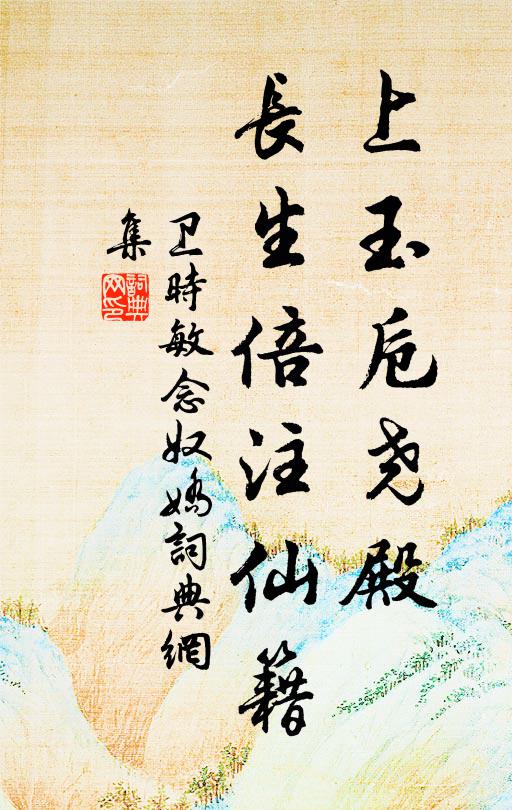 上玉卮尧殿
長生倍注仙籍
卫時敏念奴嬌詞典網
集
詞典
网印